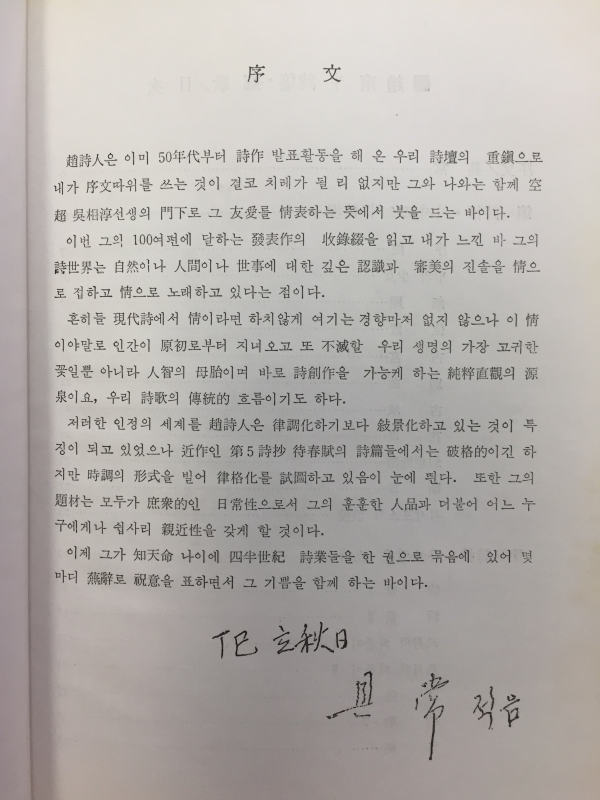 序文
趙詩人은 이미 50年代부터 詩作 발표활동을 해 온 우리 詩壇의 重鎭으로
내가 序文따위를 쓰는 것이 결코 치레가 될 리 없지만 그와 나와는 함께 空
超 吳相淳선생의 門下로 그 友愛를 情表하는 뜻에서 붓을 드는 바이다.
이번 그의 100여편에 달하는 發表作의 收錄綴을 읽고 내가 느낀 바 그의
詩世界는 自然이나 人間이나 世事에 대한 깊은 認識과 審美의 진솔을 情으
로 접하고 情으로 노래하고 있다는 점이다.
흔히들 現代詩에서 情이라면 하치않게 여기는 경향마저 없지 않으나 이 情
이야말로 인간이 原初로부터 지녀오고 또 不滅할 우리 생명의 가장 고귀한
꽃일뿐 아니라 人智의 母胎이며 바로 詩創作을 가능케 하는 純粹直觀의 源
泉이요, 우리 詩歌의 傳統的 흐름이기도 하다.
저러한 인정의 세계를 趙詩人은 律調化하기보다 敍景化하고 있는 것이 특
징이 되고 있었으나 近作인 第5詩抄 待春賦의 詩篇들에서는 破格的이긴 하
지만 時調의 形式을 빌어 律格化를 試圖하고 있음이 눈에 띈다. 또한 그의
題材는 모두가 庶衆的인 日常性으로서 그의 훈훈한 人品과 더불어 어느 누
구에게나 쉽사리 親近性을 갖게 할 것이다.
이제 그가 知天命 나이에 四半世紀 詩業들을 한 권으로 묶음에 있어 몇
마디 蕪辭로 祝意을 표하면서 그 기쁨을 함께 하는 바이다.
丁巳 立秋日
具 常 적음